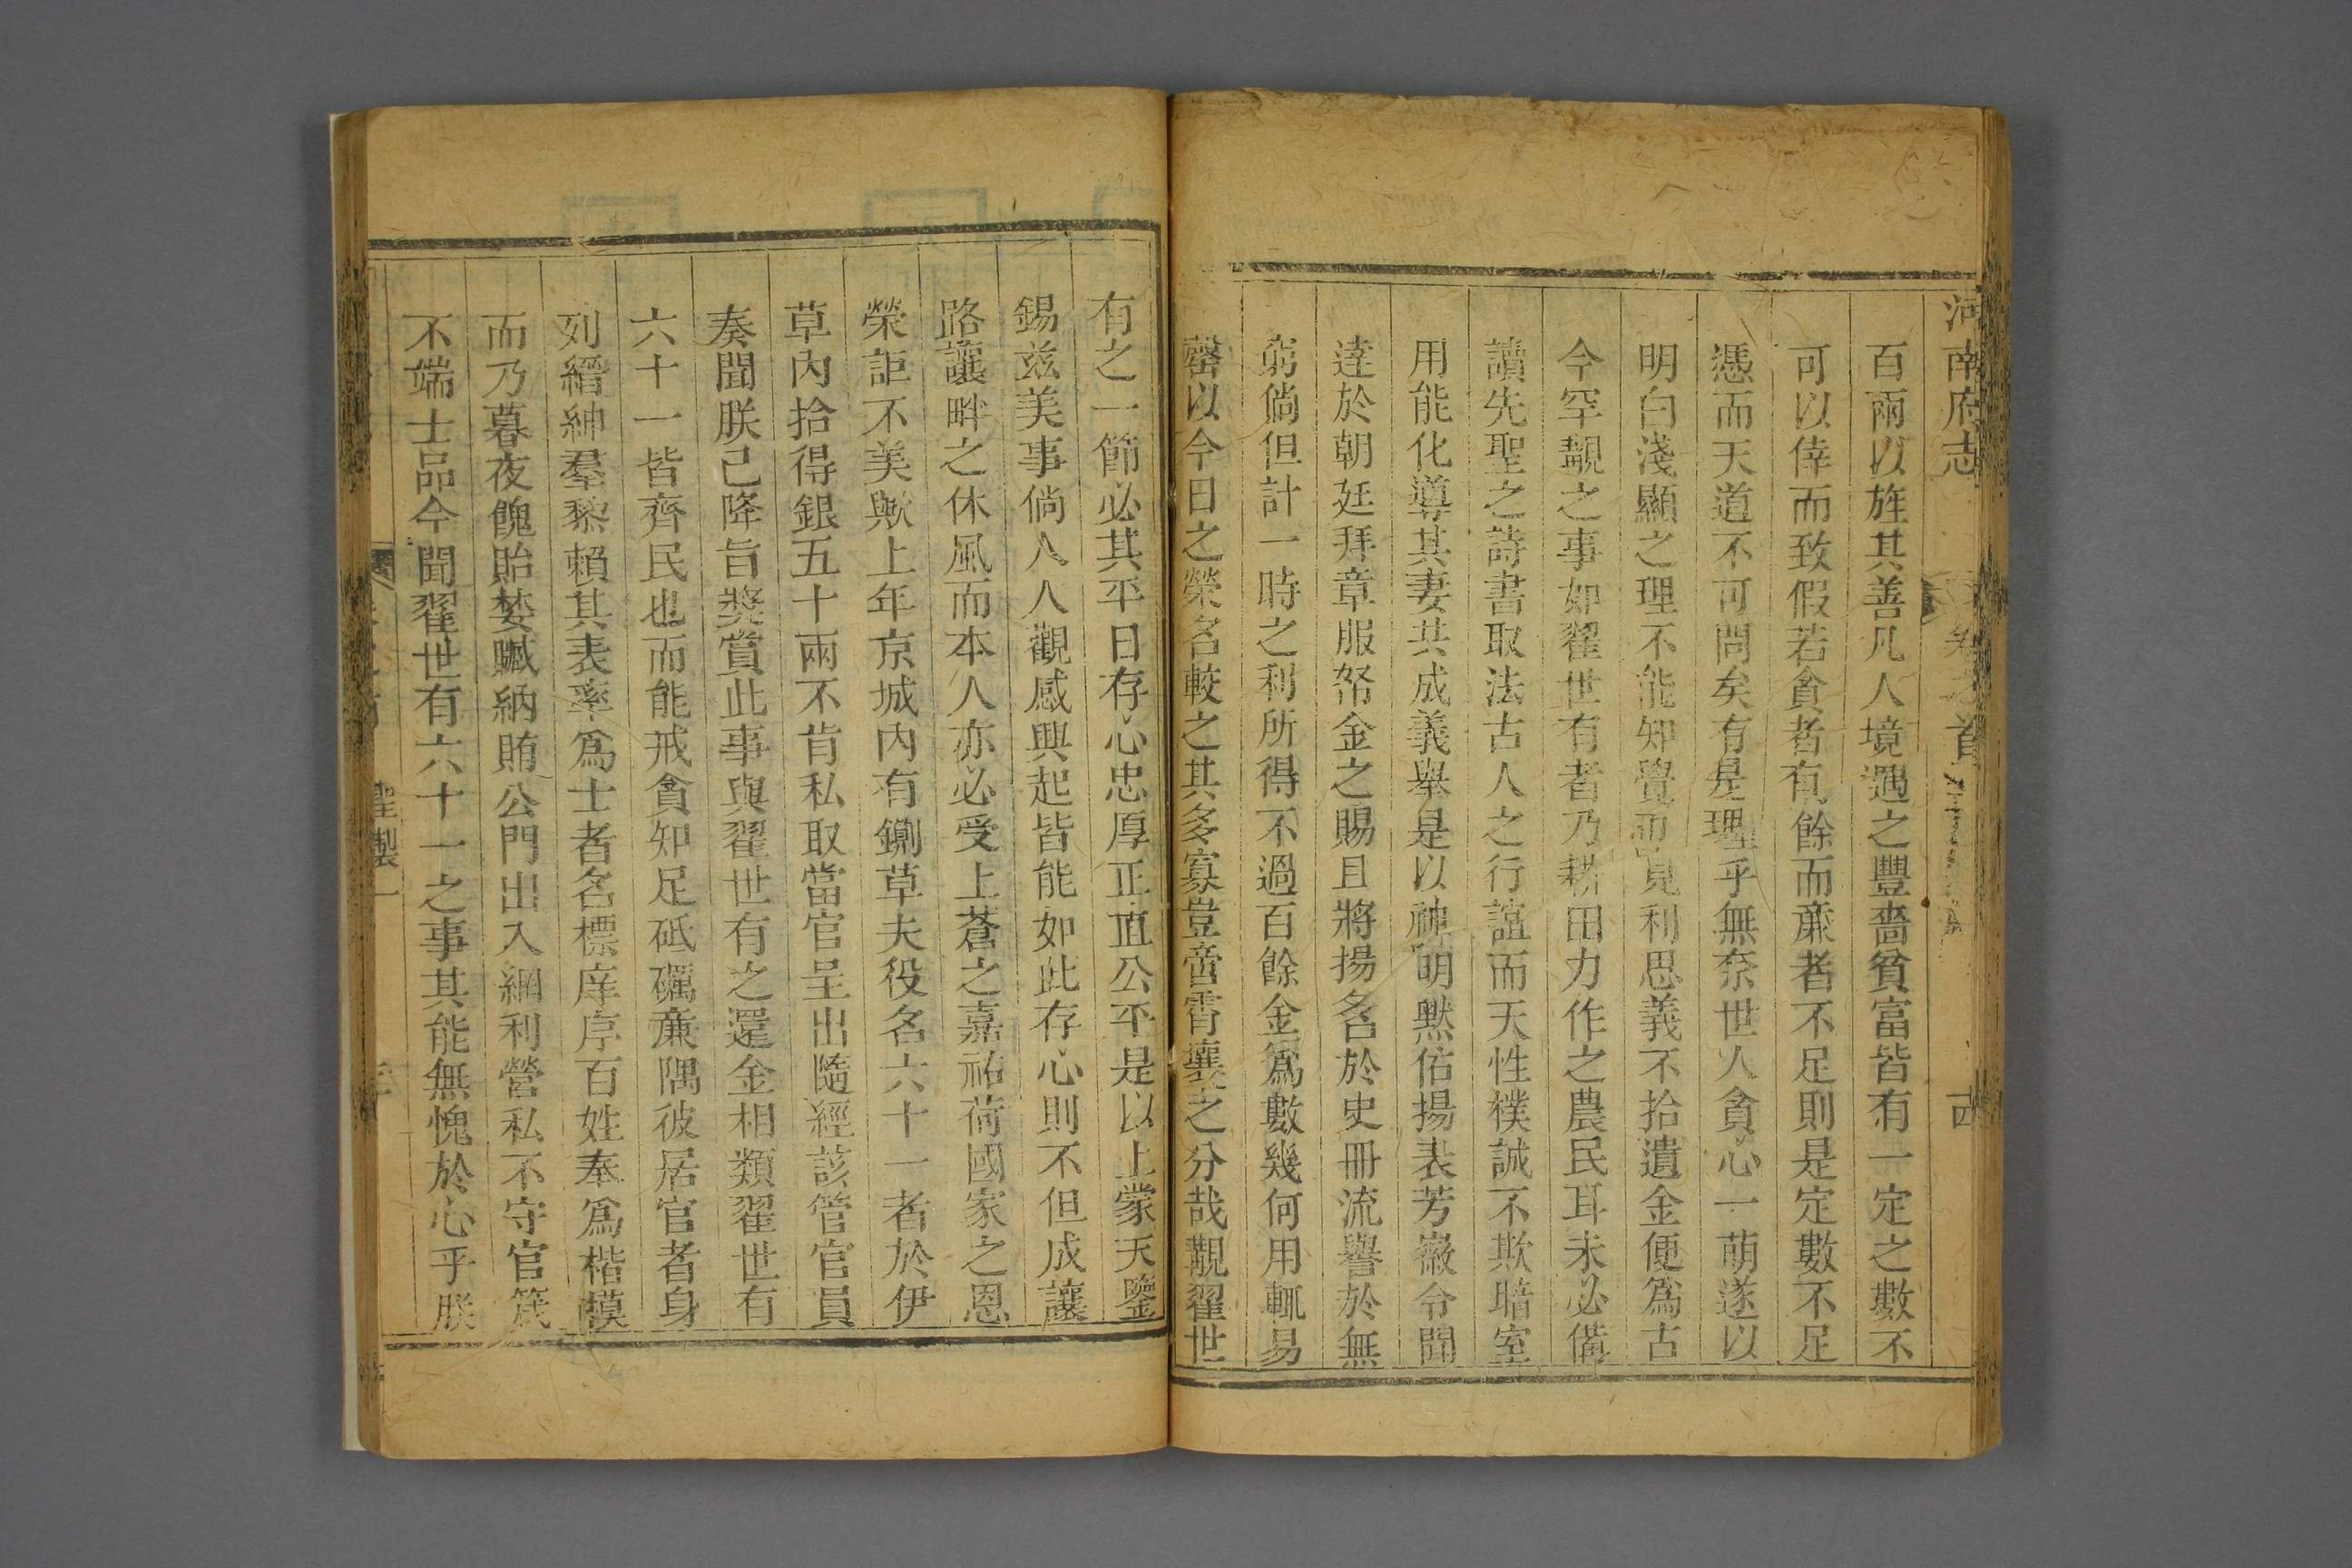 河南府志 卷之首 四
百兩以旌其善凡人境遇之豐嗇貧富皆有一定之數不
可以倖而致假若貪者有餘而亷者不足則是定數不足
憑而天道不可問矣有是理乎無奈世人貪心一萌遂以
明白淺顯之理不能知覺卽見利思義不拾遺金便爲古
今罕覯之事如翟世有者乃耕田力作之農民耳未必偹
讀先聖之詩書取法古人之行誼而天性樸誠不欺暗室
用能化導其妻共成義舉是以神明默佑揚表芳徽令聞
逹於朝廷拜章服帑金之賜且將揚名於史冊流譽於無
窮倘但計一時之利所得不過百餘金爲數幾何用輒易
罄以今日之榮名較之其多寡豈啻霄壤之分哉觀翟世
有之一節必其平日存心忠厚正直公平是以上蒙天鑒
錫兹美事倘人人觀感興起皆能如此存心則不但成讓
路讓畔之休風而本人亦必受上蒼之嘉祐荷國家之恩
榮詎不美歟上年京城內有鍘草夫役名六十一者於伊
草內拾得銀五十兩不肯私取當官呈出隨經該管官員
奏聞朕已降旨獎賞此事與翟世有之還金相類翟世有
六十一皆齊民也而能戒貪知足砥礪亷隅彼居官者身
列縉紳羣黎賴其表率爲士者名標庠序百姓奉爲楷模
而乃暮夜餽貽婪贓納賄公門出入網利營私不守官箴
不端士品今聞翟世有六十一之事其能無愧於心乎朕
聖製一